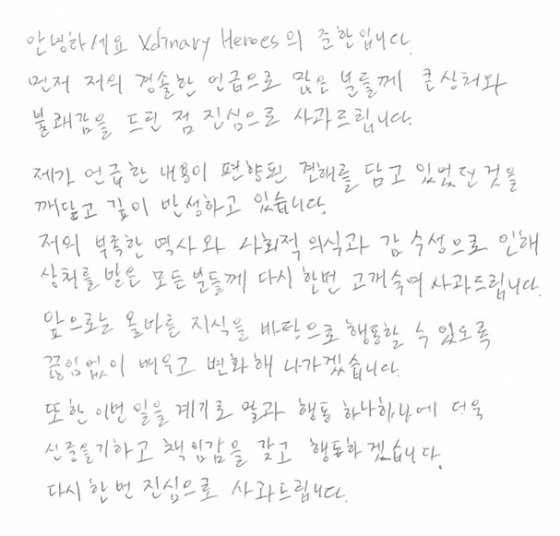 안녕하세요 Xdinary Heroes의 준한입니다.
먼저 저의 경솔한 언급으로 많은 분들께 큰 상처와
불쾌감을 드린 점 진심으로 사과드립니다.
제가 언급한 내용이 편향된 견해를 담고 있었던 것을
깨닫고 깊이 반성하고 있습니다.
저의 부족한 역사와 사회적 의식과 감수성으로 인해
상처를 받은 모든 분들께 다시 한번 고개숙여 사과드립니다.
앞으로는 올바른 지식을 바탕으로 행동할 수 있도록
끊임없이 배우고 변화해 나가겠습니다.
또한 이번 일을 계기로 말과 행동 하나하나에 더욱
신중을기하고 책임감을 갖고 행동하겠습니다.
다시 한번 진심으로 사과드립니다.